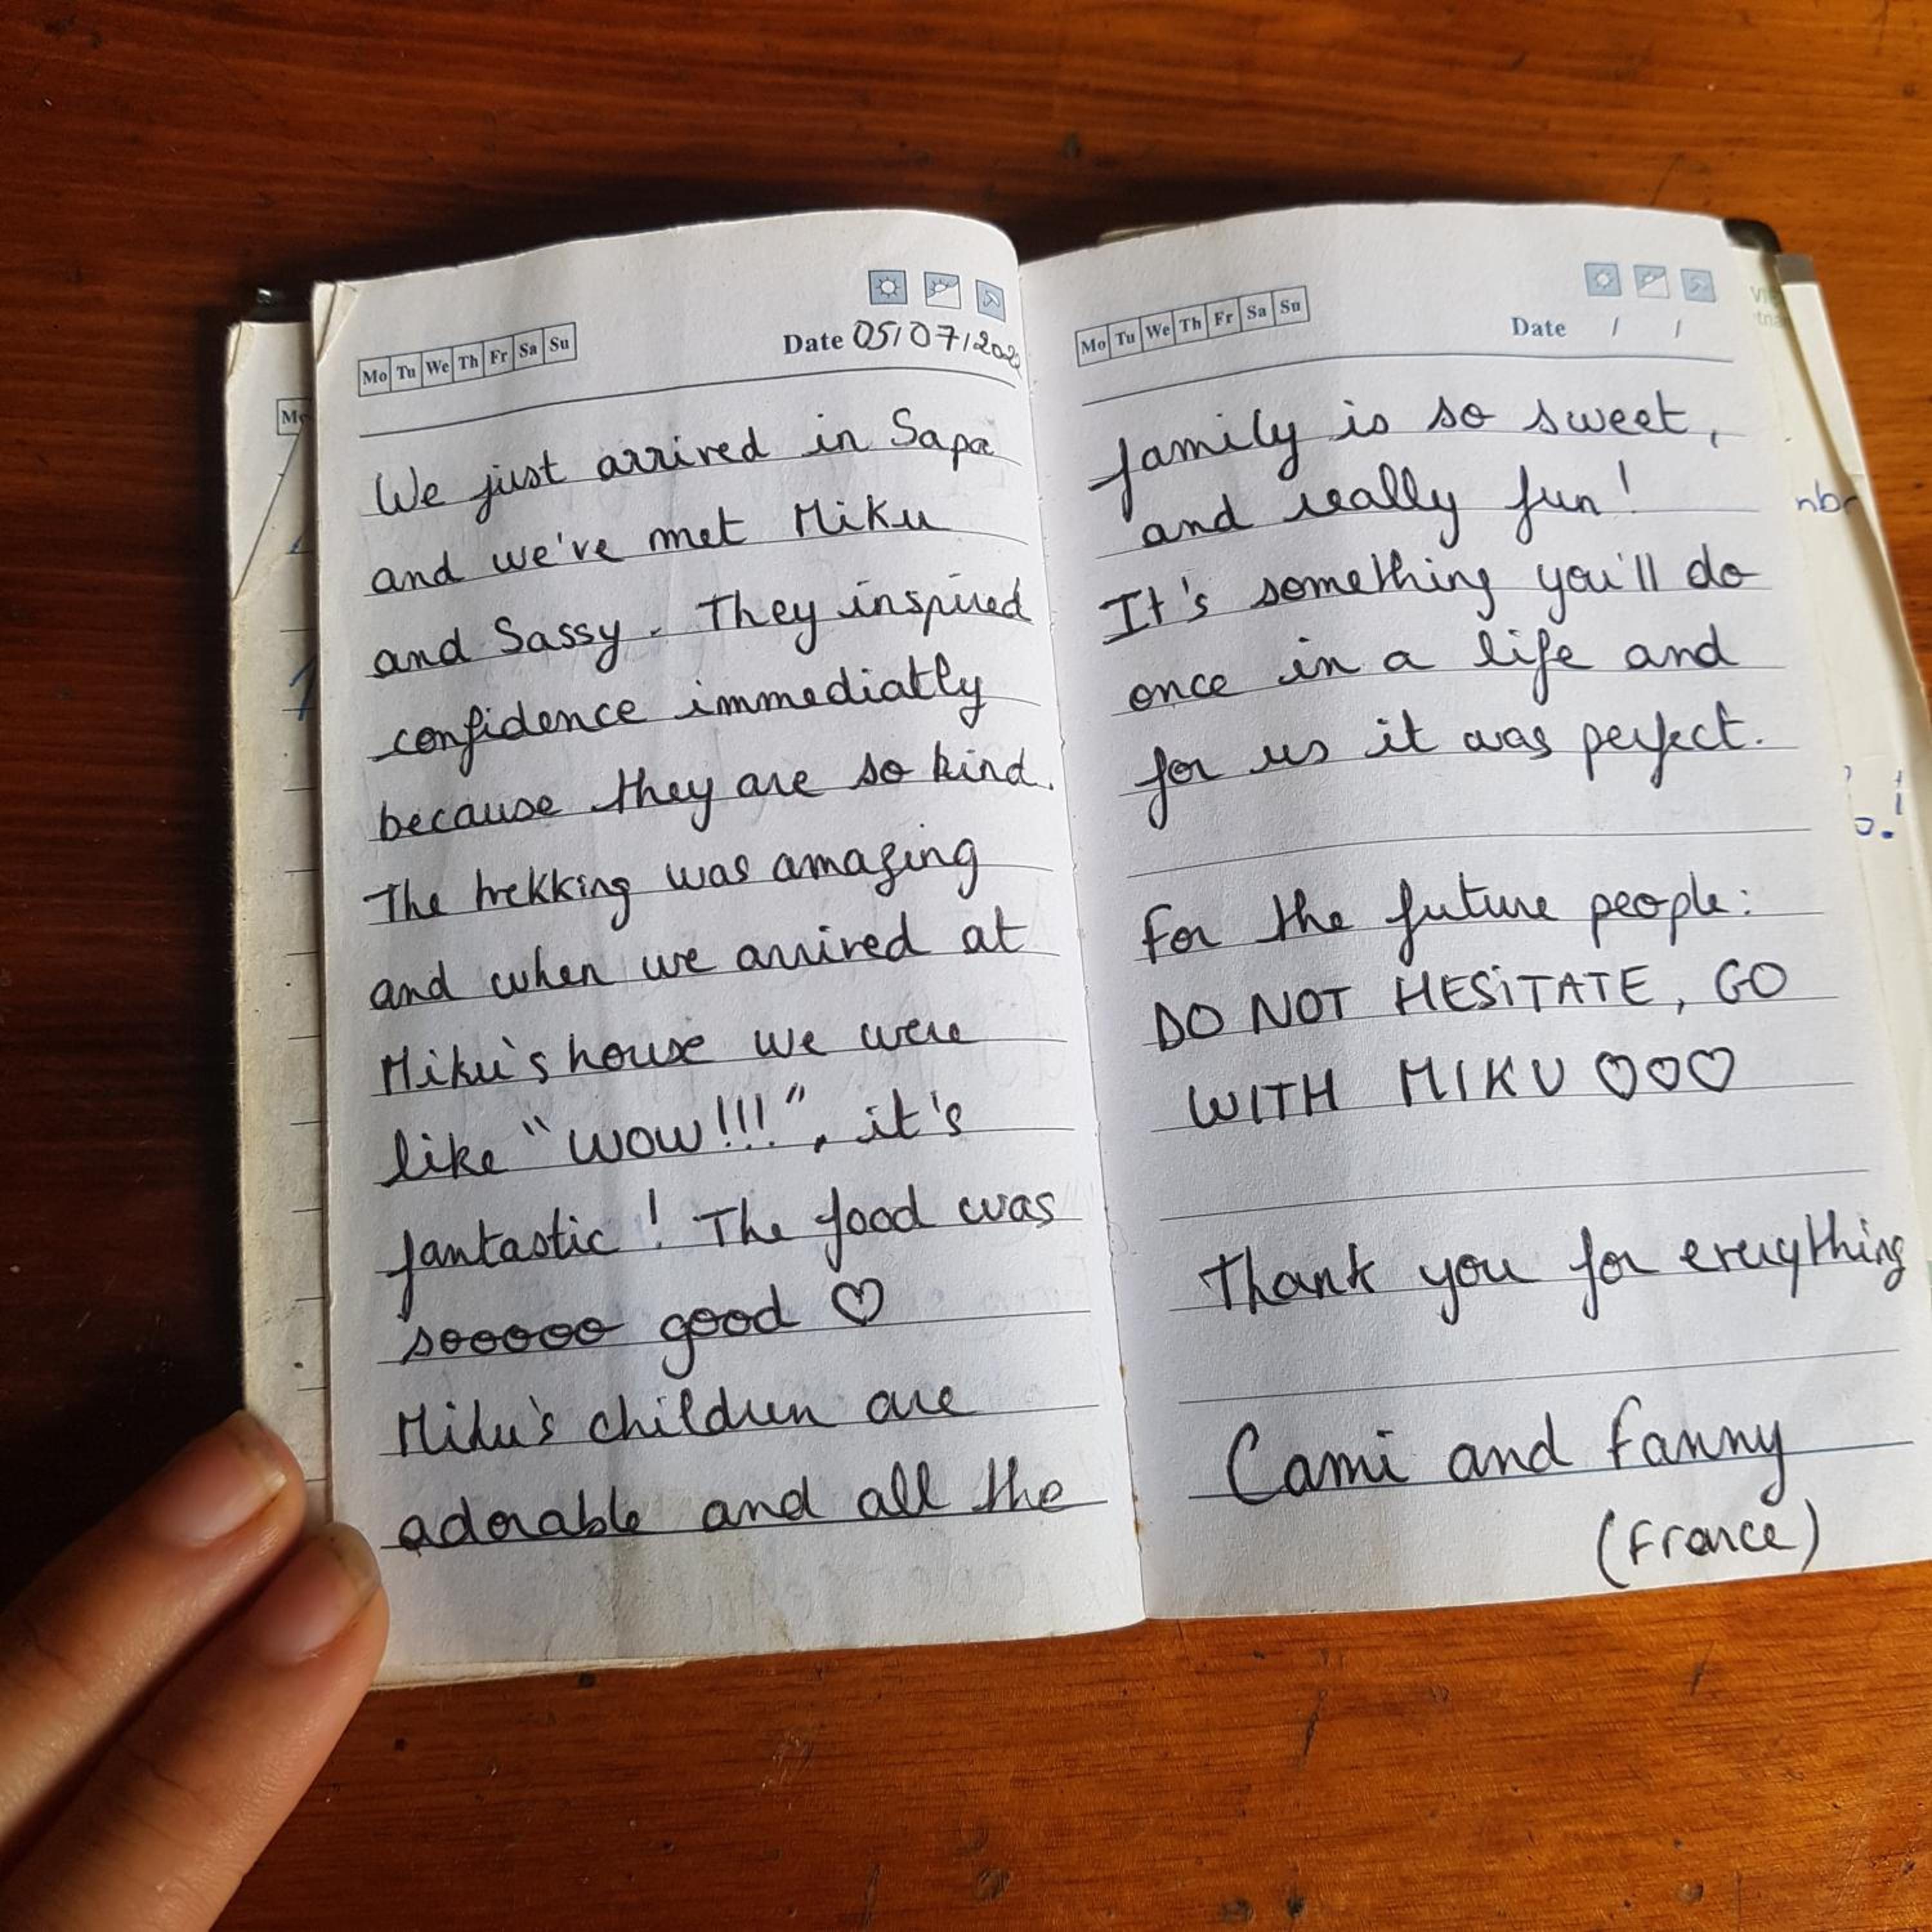 Mo Tu We Th Fr Sa Su
Date 05/07/202
We just arrived in Sapa
and we've met Miku
and Sassy. They inspired
confidence immediatly
because they are so kind.
The trekking was amazing
and when we arrived at
Miku's house we were
like "WOW!!!", it's
fantastic! The food was
sooooo good ♡
Miku's children are
adorable and all the
Mo Tu We Th Fr Sa Su
Date / /
family is so sweet,
and really fun!
It's something you'll do
once in a life and
for us it was perfect.
For the future people:
DO NOT HESITATE, GO
WITH MIKU ♡♡♡
Thank you for everything
Cami and Fanny
(France)